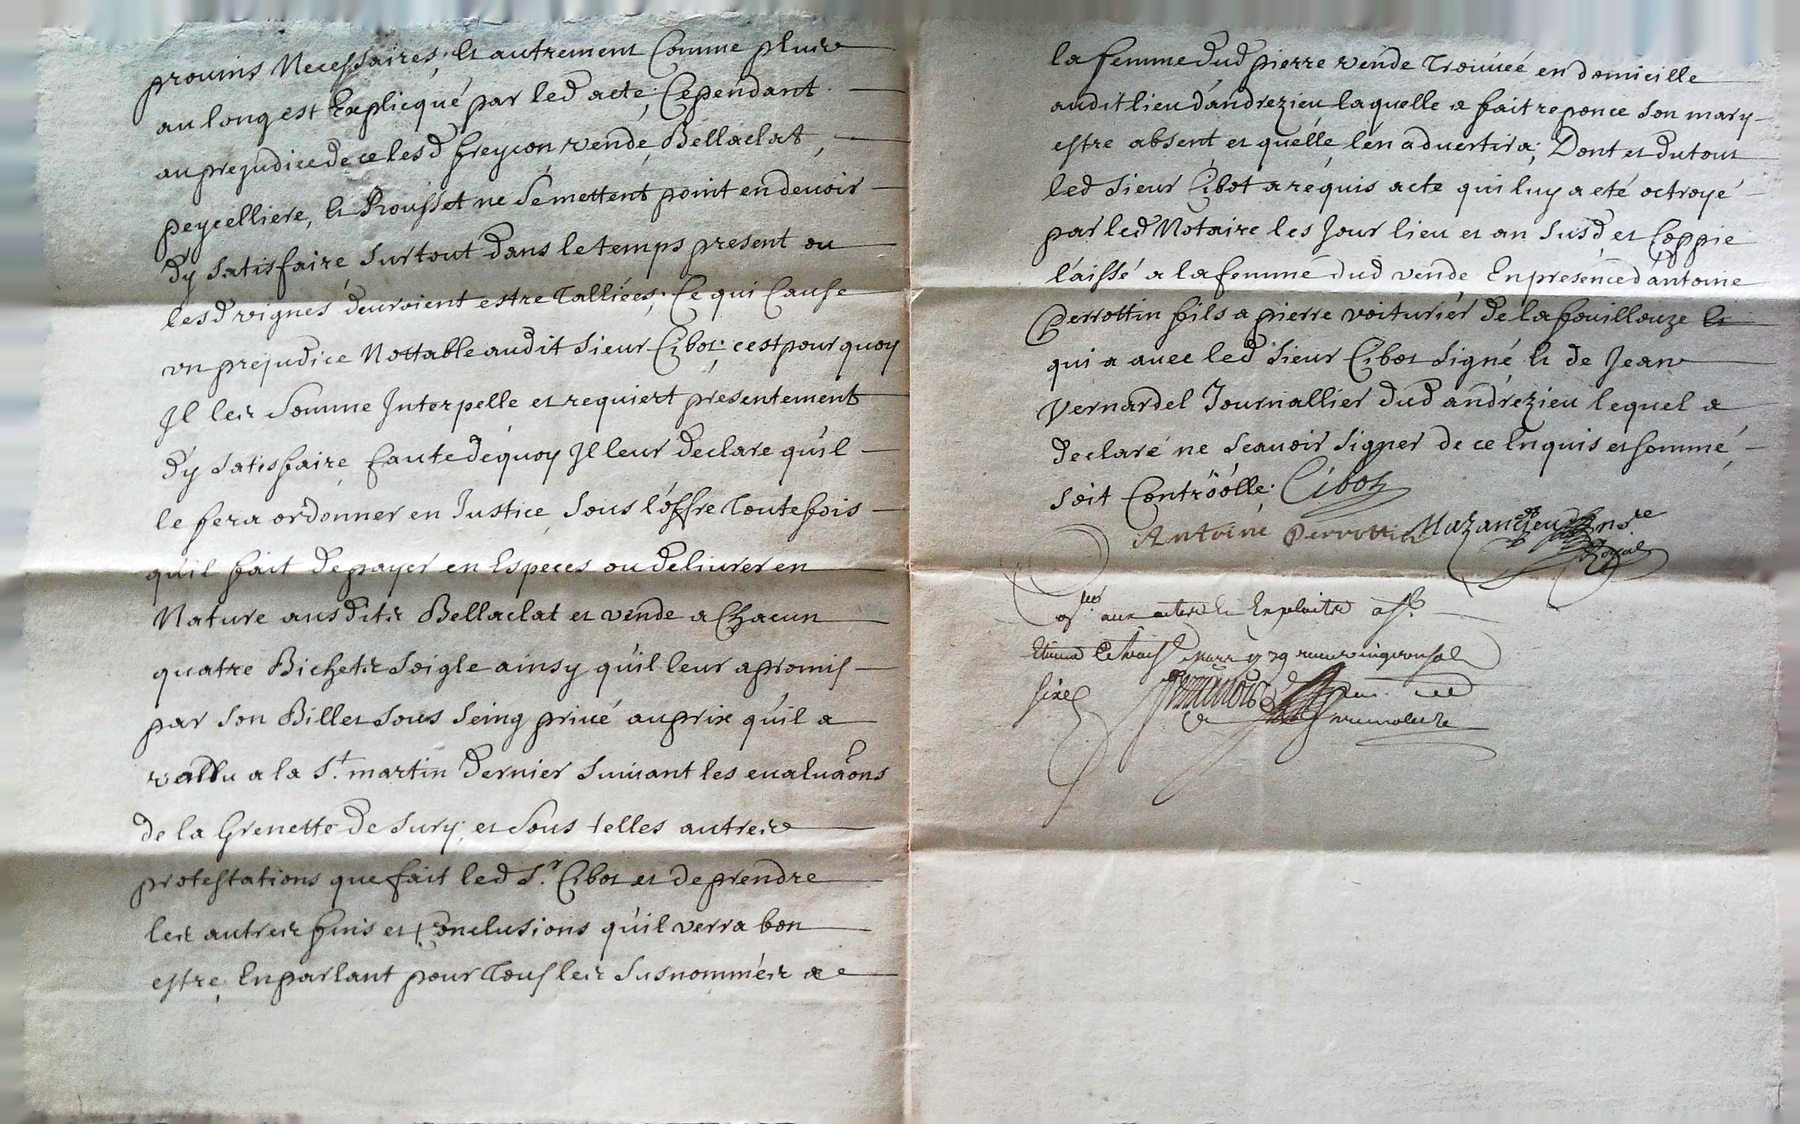 prouins Necessaires, et autrement Comme plus
au long est Explicqué par led acte, Cependant
au prejudice de ce lesd freycon, vende, Bellaclat,
peycelliere, et Rousset ne se mettent point en devoir
d'y satisfaire surtout dans le temps present ou
lesd vignes deuroient estre Talliées, Ce qui Cause
un prejudice Nottable audit sieur Cibot, c'est pour quoy
Il les somme Interpelle et requiert présentement
d'y satisfaire, faute de quoy Il leur declare qu'il
le fera ordonner en Justice, sous l'offre Toutefois
qu'il fait de payer en Especes ou deliurer en
Nature ausdits Bellaclat et vende a Chacun
quatre Bichets soigle ainsy qu'il leur a promis
par son Billet sous seing privé au prix qu'il a
vallu a la St. martin dernier suivant les evaluaons
de la Grenette de Sury, et sous telles autres
protestations que fait led Sr. Cibot et de prendre
les autres fins et Conclusions qu'il verra bon
estre, En parlant pour Tous les susnommés a
la femme dud pierre vende Trouuéé en domicille
audit lieu d'andrezieu laquelle a fait reponce son mary
estre absent et quelle l'en aduertira, Dont et du tout
led sieur Cibot a requis acte qui luy a eté octroyé
par led Notaire les Jour lieu et an susd et Coppie
laissé a la femme dud vende, En présence d'antoine
Perrottin fils a pierre voiturier de la fouillouze et
qui a auec led sieur Cibot signé et de Jean
Vernardel Journallier dud andrézieu lequel a
declaré ne scauoir signer de ce Enquis et sommé,
soit Controollé. Cibot
Antoine Perrottin Mazancieu nore
Royal
aux actes et Exploits